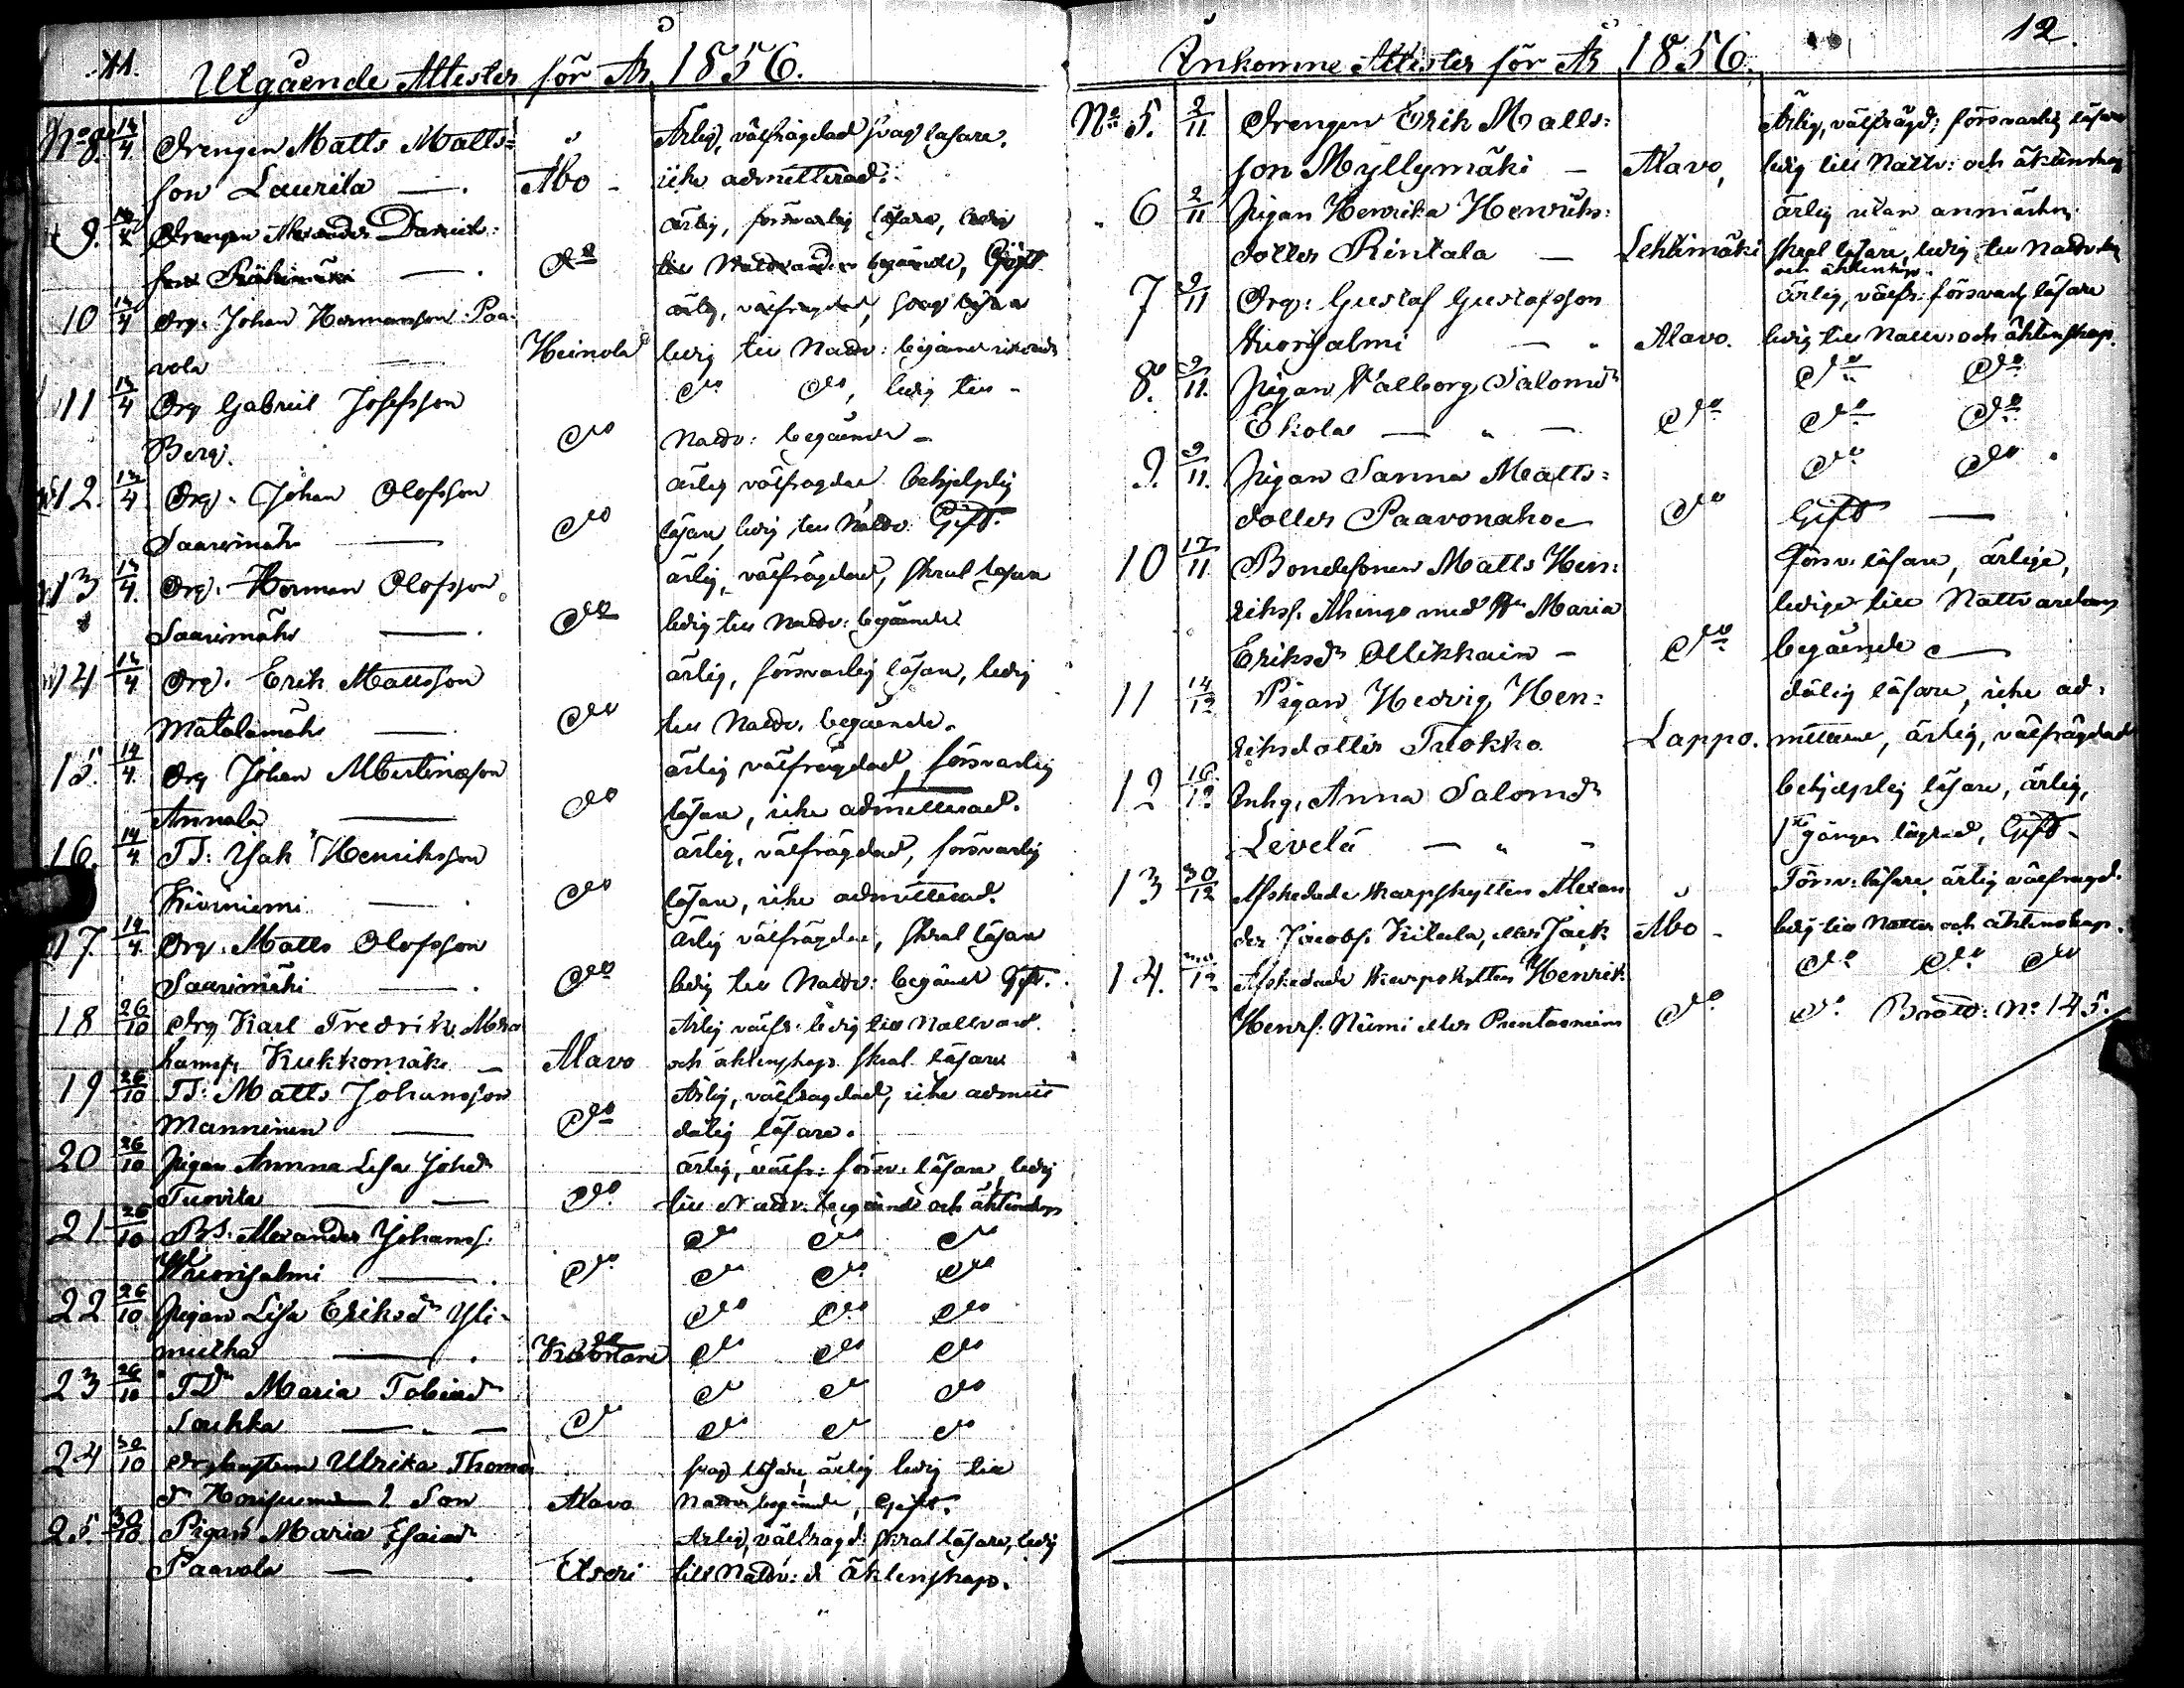 11.
Utgående Attester för År 1856.
No 8. 14/4 Drengen Matts Matts=
son Laurila — Åbo - Ärlig, välfrägdad svag läsare,
icke admitterad.
9. Drengen Alexander Daniels:
son — Do ärlig, försvarlig läsare, ledig
till Nattvardens begående, Gift
10 14/4 Drg. Johan Hermansson Paa-
vola — Heinola ärlig, välfrägdad, svag läsare
ledig till Nattv: begående
11 14/4 Drg Gabriel Josefsson
Berg. Do Do Do, ledig till
Nattv: begående -
12. 14/4 Drg. Johan Olofsson
Saarimäki — Do ärlig välfrägdad behjelplig
läsare, ledig till Nattv: Gift.
13 14/4 Drg. Herman Olofsson
Saarimäki — Do ärlig, välfrägdad, skral läsare
ledig till Nattv: begående
14 14/4 Drg. Erik Mattsson
Matalamäki — Do ärlig, försvarlig läsare, ledig
till Nattv. begående.
15. 14/4 Drg Johan Mårtinsson
Annala — Do ärlig välfrägdad, försvarlig
läsare, icke admitterad.
16. 14/4 TS: Isak Henriksson
Kiviniemi — Do ärlig, välfrägdad, försvarlig
läsare, icke admitterad.
17. 14/4 Drg. Matts Olofsson
Saarimäki — Do ärlig välfrägdad, skral läsare
ledig till Nattv: begående Gift.
18 26/10 Drg Karl Fredrik Abra
hamss. Kukkomäki — Alavo Ärlig välfr: ledig till Nattvard.
och äktenskap skral läsare
19 26/10 TS: Matts Johansson
Manninen — Do Ärlig, välfrägdad, icke admitt
dålig läsare.
20 26/10 Pigan Annna Lisa Johsdr
Tuorila — Do ärlig, välfr: försv: läsare, ledig
till Nattv: begående och äktenskap
21 26/10 BS. Alexander Johanss.
Wuorisalmi — Do Do Do Do
Do Do Do
22 26/10 Pigan Lisa Eriksdr Yli-
— Do Do Do
Do Do Do
23 26/10 TDr Maria Tobiasdr
Soukka — Do Do Do Do
Do Do Do
24 30/10 Drg Ulrika Thomas
dr 1 Son Alavo svag läsare, ärlig ledig till
Nattv: begående, Gift.
25. 30/10 Pigan Maria Esaiasdr
Paavola — Etseri Ärlig, välfrägd: skral läsare, ledig
till Nattv: & äktenskap.
12.
Inkomne Attester för År 1856.
No 5. 2/11 Drengen Erik Matts:
son Myllymäki — Alavo, Ärlig, välfrägd: försvarlig läsare
ledig till Nattv: och äktenskap
6 2/11 Pigan Henrika Henriks:
dotter Rintala — Lehtimäki ärlig utan anmärkn.
skral läsare, ledig till Nattvard
och äktenskap.
7 9/11 Drg: Gustaf Gustafsson
Wuorisalmi — Alavo. ärlig, välfr: försvarlig läsare
ledig till Nattv: och äktenskap.
8. 9/11. Pigan Valborg Salomdr
Ekola — " — Do Do Do
Do Do
9. 9/11. Pigan Sanna Matts:
dotter Paavonaho — Do Do Do
Gift —
10 17/11 Bondesonen Matts Hen:
rikss. Ahinge med Hu Maria
Eriksdr Ollikkain — Do Försv: läsare, ärlige,
ledige till Nattvardens
begående —
11 14/12 Pigan Hedvig Hen:
riksdotter Tuokko Lappo. dålig läsare, icke ad-
mitterad, ärlig, välfrägdad
12 16/12 Inhq. Anna Salomdr
Levelä — " - behjelplig läsare, ärlig,
1sta gången lägrad, Gift -
13 30/12 Afskedade skarpskytten Alexan
der Jacobss. Kitula, eller Jack Åbo - Försv: läsare, ärlig välfrägd.
ledig till Nattv: och äktenskap.
14. 12 Afskedade skarpskytten Henrik
Henrs: Niemi eller Do Do Do Do
Do No 145.